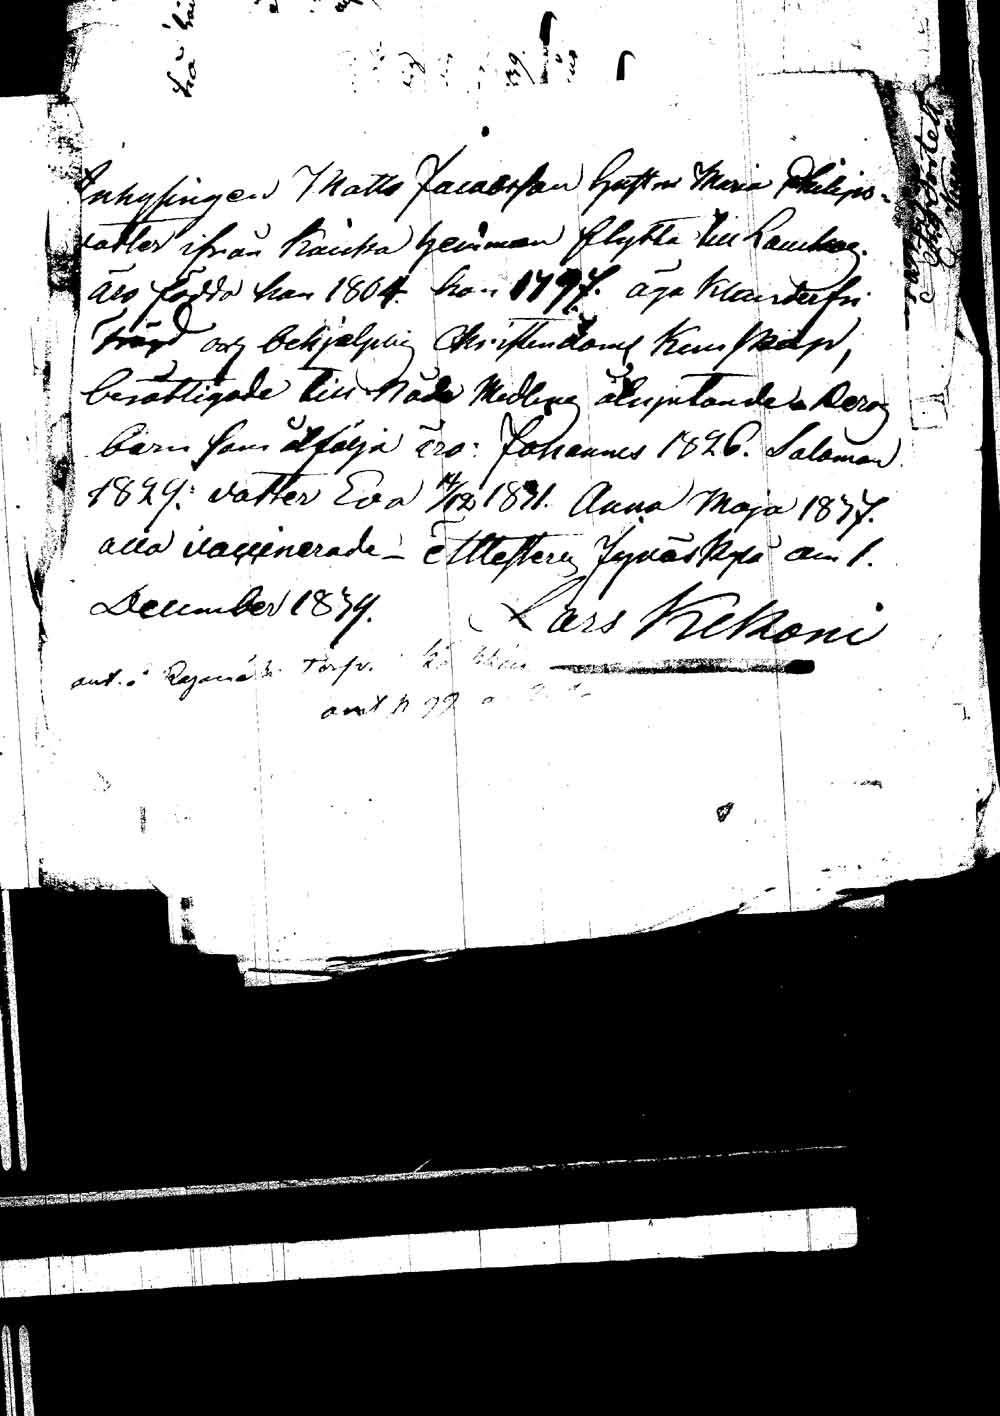 Inhysingen Matts Jacobsson hustru Maria Philips-
dotter ifrån Kauka hemman flytta till Laukas.
äro födda han 1804. hon 1797. äga klanderfri
frägd och behjelplig Christendoms Kunskap,
berättigade till Nåde Medlens åtnjutande. Deras
barn som åtfölja äro: Johannes 1826. Salomon
1829: dotter Eva 14/12 1831. Anna Maja 1837.
alla vaccinerade - Attesterar Jyväskylä den 1.
December 1839. Lars Kekoni
ant. Torp.
ant p 99